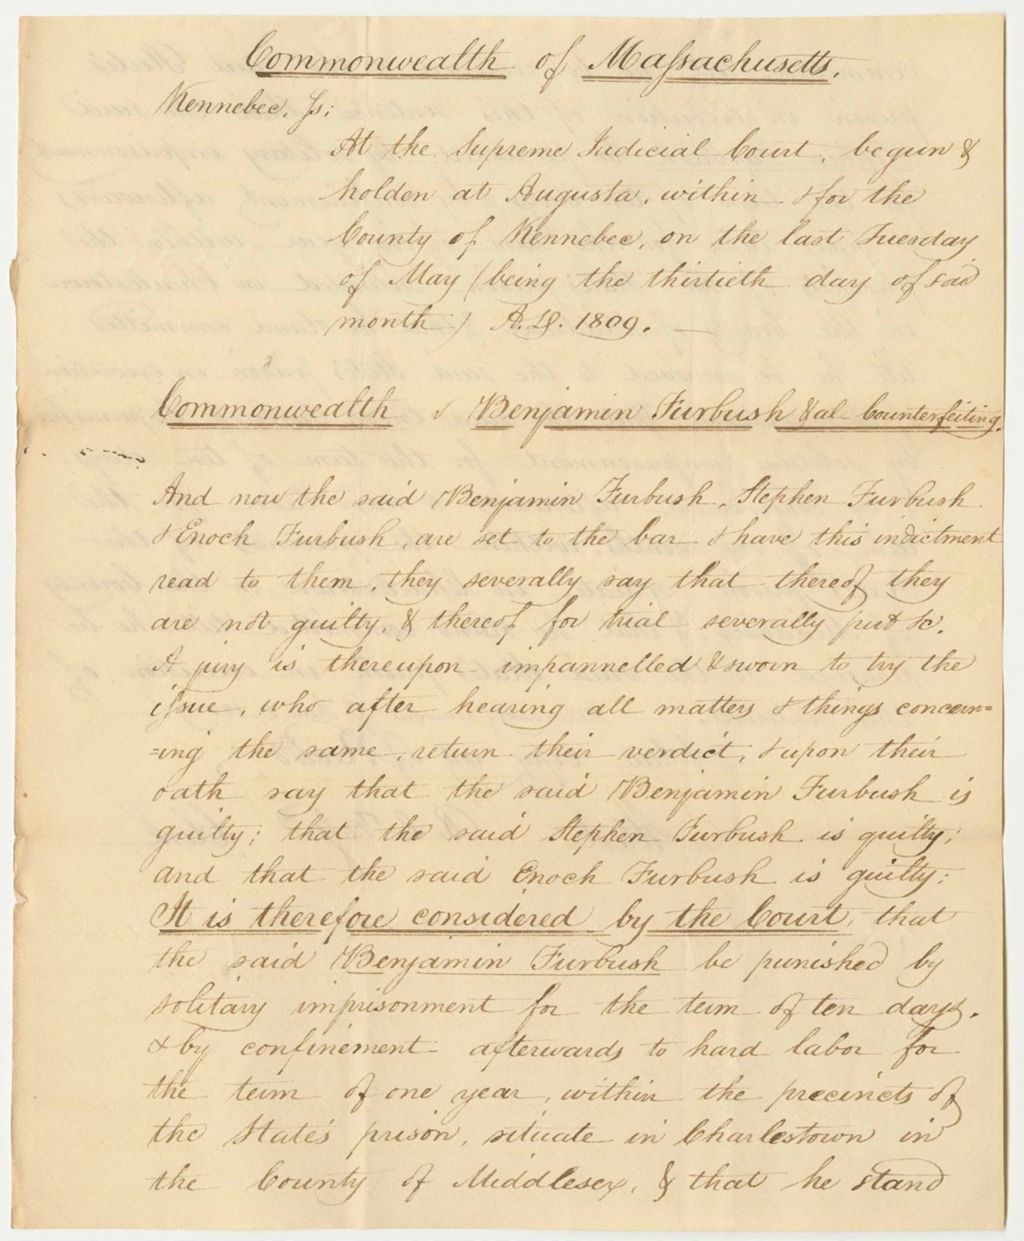 Commonwealth of Massachusetts.
Kennebec, Ss:
At the Supreme Judicial Court, begun &
holden at Augusta, within & for the
County of Kennebec, on the last Tuesday
of May (being the thirtieth day of said
month) A.D. 1809.
Commonwealth v Benjamin Furbush & al- Counterfeiting.
And now the said Benjamin Furbush, Stephen Furbush
& Enoch Furbush, are set to the bar & have this indictment
read to them, they severally say that thereof they
are not guilty, & thereof for trial severally put &c.
A jury is thereupon impannelled & sworn to try the
issue, who after hearing all matters & things concern=
=ing the same, return their verdict, & upon their
oath say that the said Benjamin Furbush is
guilty; that the said Stephen Furbush is guilty;
and that the said Enoch Furbush is guilty:
It is therefore considered by the Court, that
the said Benjamin Furbush be punished by
solitary imprisonment for the term of ten days,
& by confinement- afterwards to hard labor for
the term of one year, within the precincts of
the State's prison, situate in Charlestown in
the County of Middlesex, & that he stand